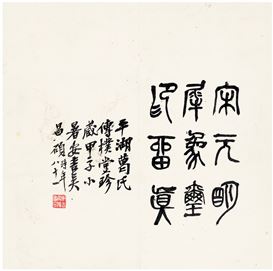 宋元明
犀象璽
印留真
平湖葛氏
傳樸堂珍
藏甲子小
暑安吉吳
昌碩時年八十一